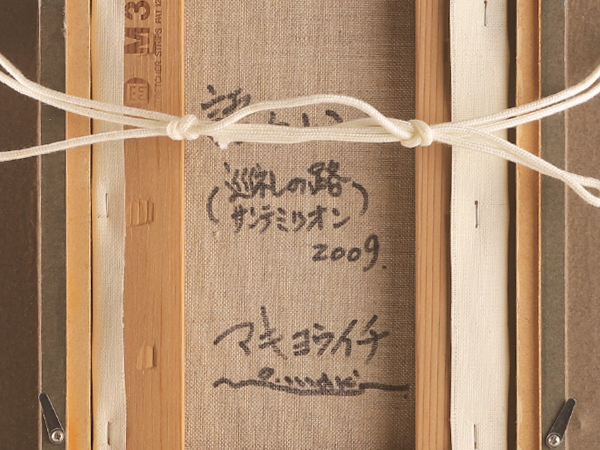 (巡礼の路
サンテミリオン)
2009.
マキヨウイチ
M 3